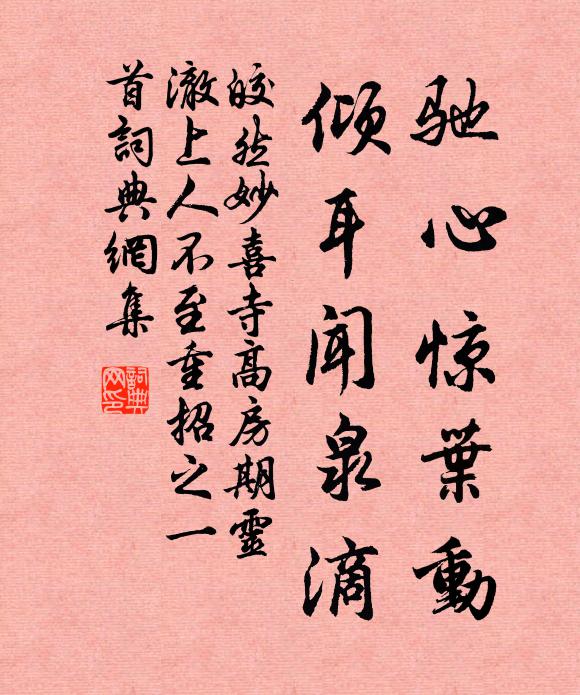 驰心惊葉動
倾耳闻泉滴
皎然妙喜寺高房期靈
澈上人不至重招之一
首詞典網集
詞典網印